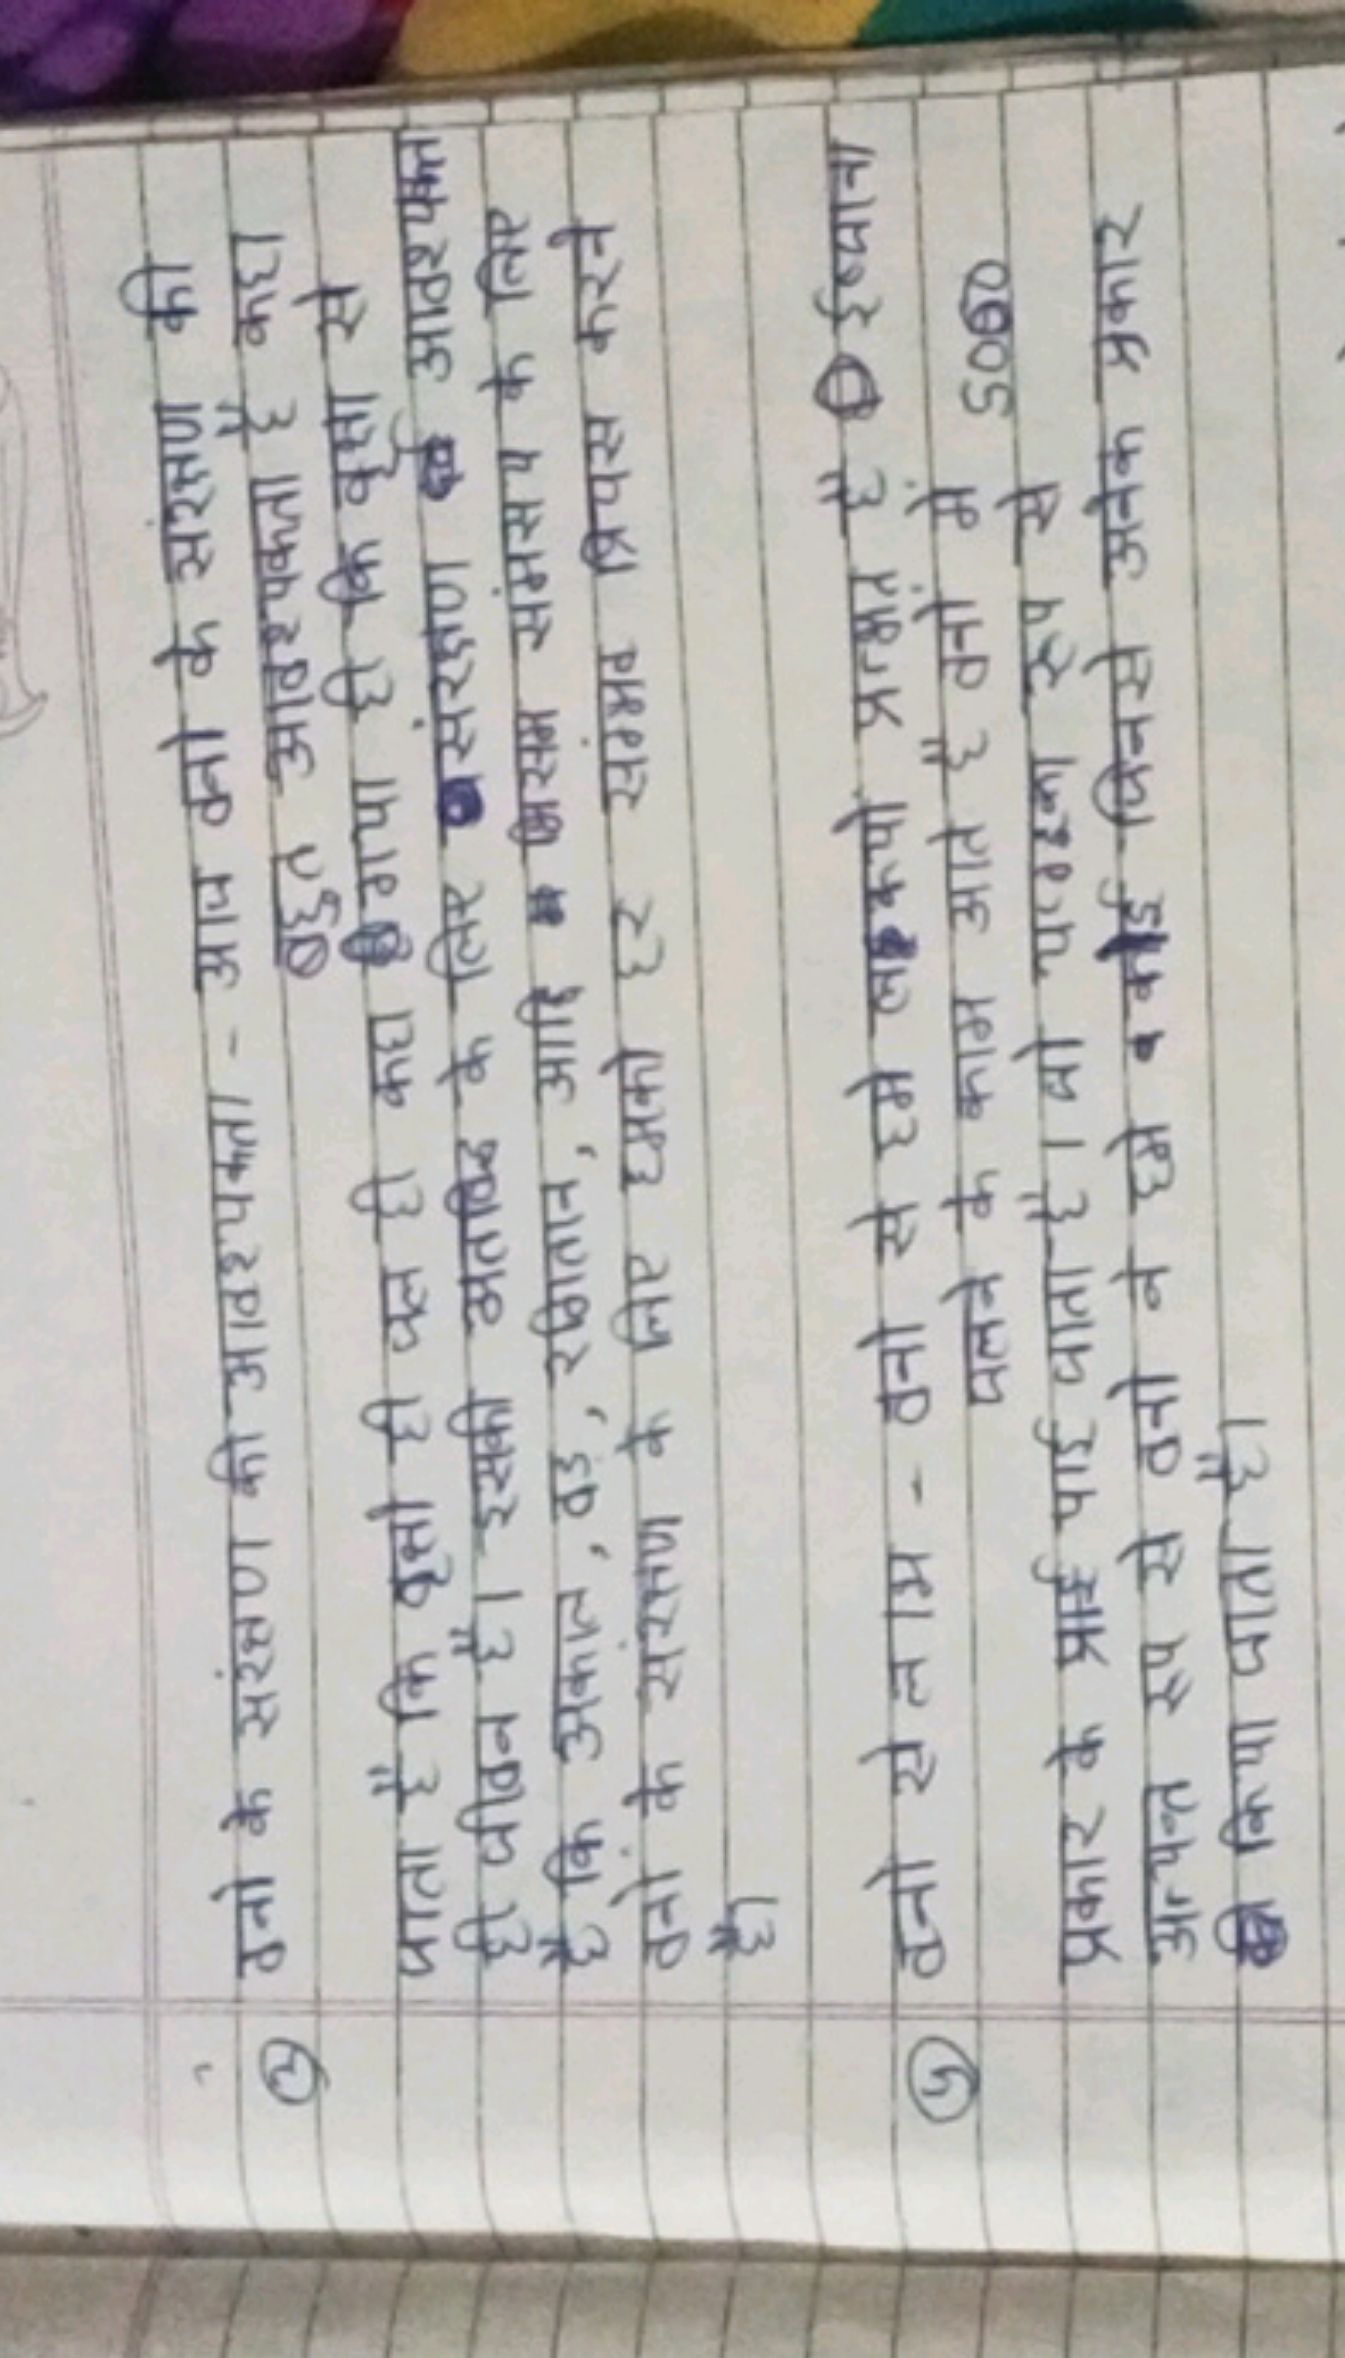 ② वनो के सरंक्षण की आवश्यकता - आज वनो के संरक्षण की
बहुत आवश्यकता है कहा
जाता है कि वृक्षो ही जल है कहा गया है कि वृक्षो से
ही जीवन है । इसकी अतलिए के लिए संरक्षण आवश्यक
है कि अकाल, बाड, रखातान, आदि भरसम समस्य के लिए
वनो के संरक्षण के लिए हमको हर संभव प्रियस करने
है।
वनो से लाभ - वनो से हमे लकडियो प्रनमत है ईन्धान।
जलने के काम आते है वनो मे 5000
प्रकार के झाड़ पाइ जाता है । जो पारश्का रूप से
अन्यन रूप से वनो ने हम व कोई जिनसे अनेक प्रकार
किया जाता है।